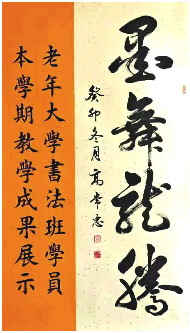 墨舞龍騰
癸卯冬月高常忠
老年大學書法班學員
本學期教學成果展示